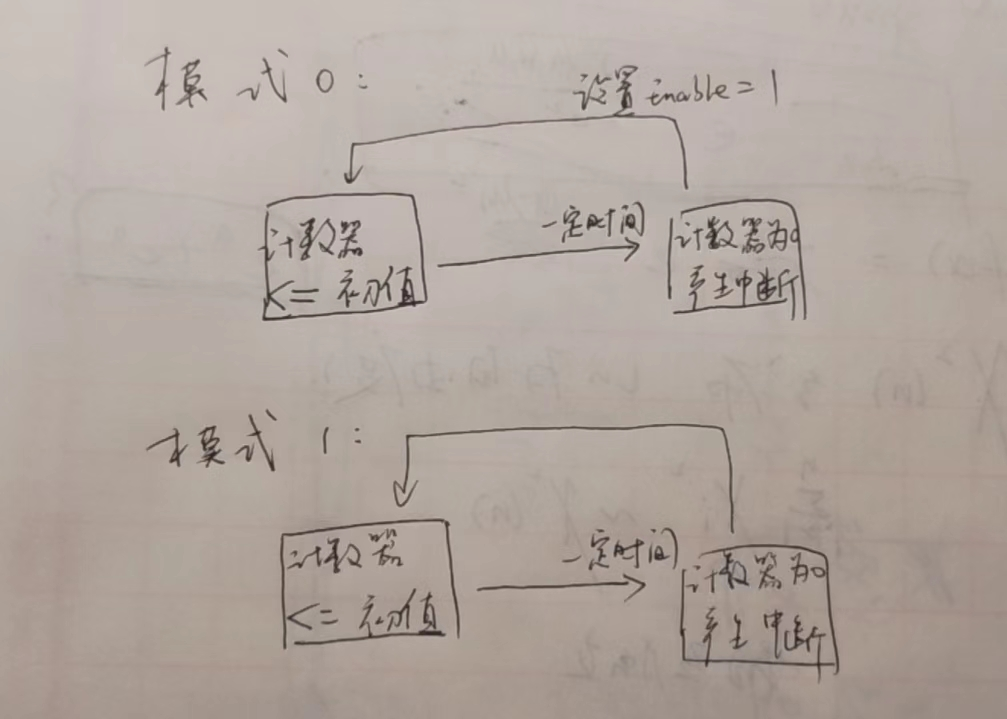 模式0:
设置enable=1
计数器
<=初值
一定时间
计数器为0
产生中断
模式1:
计数器
<=初值
一定时间
计数器为0
产生中断